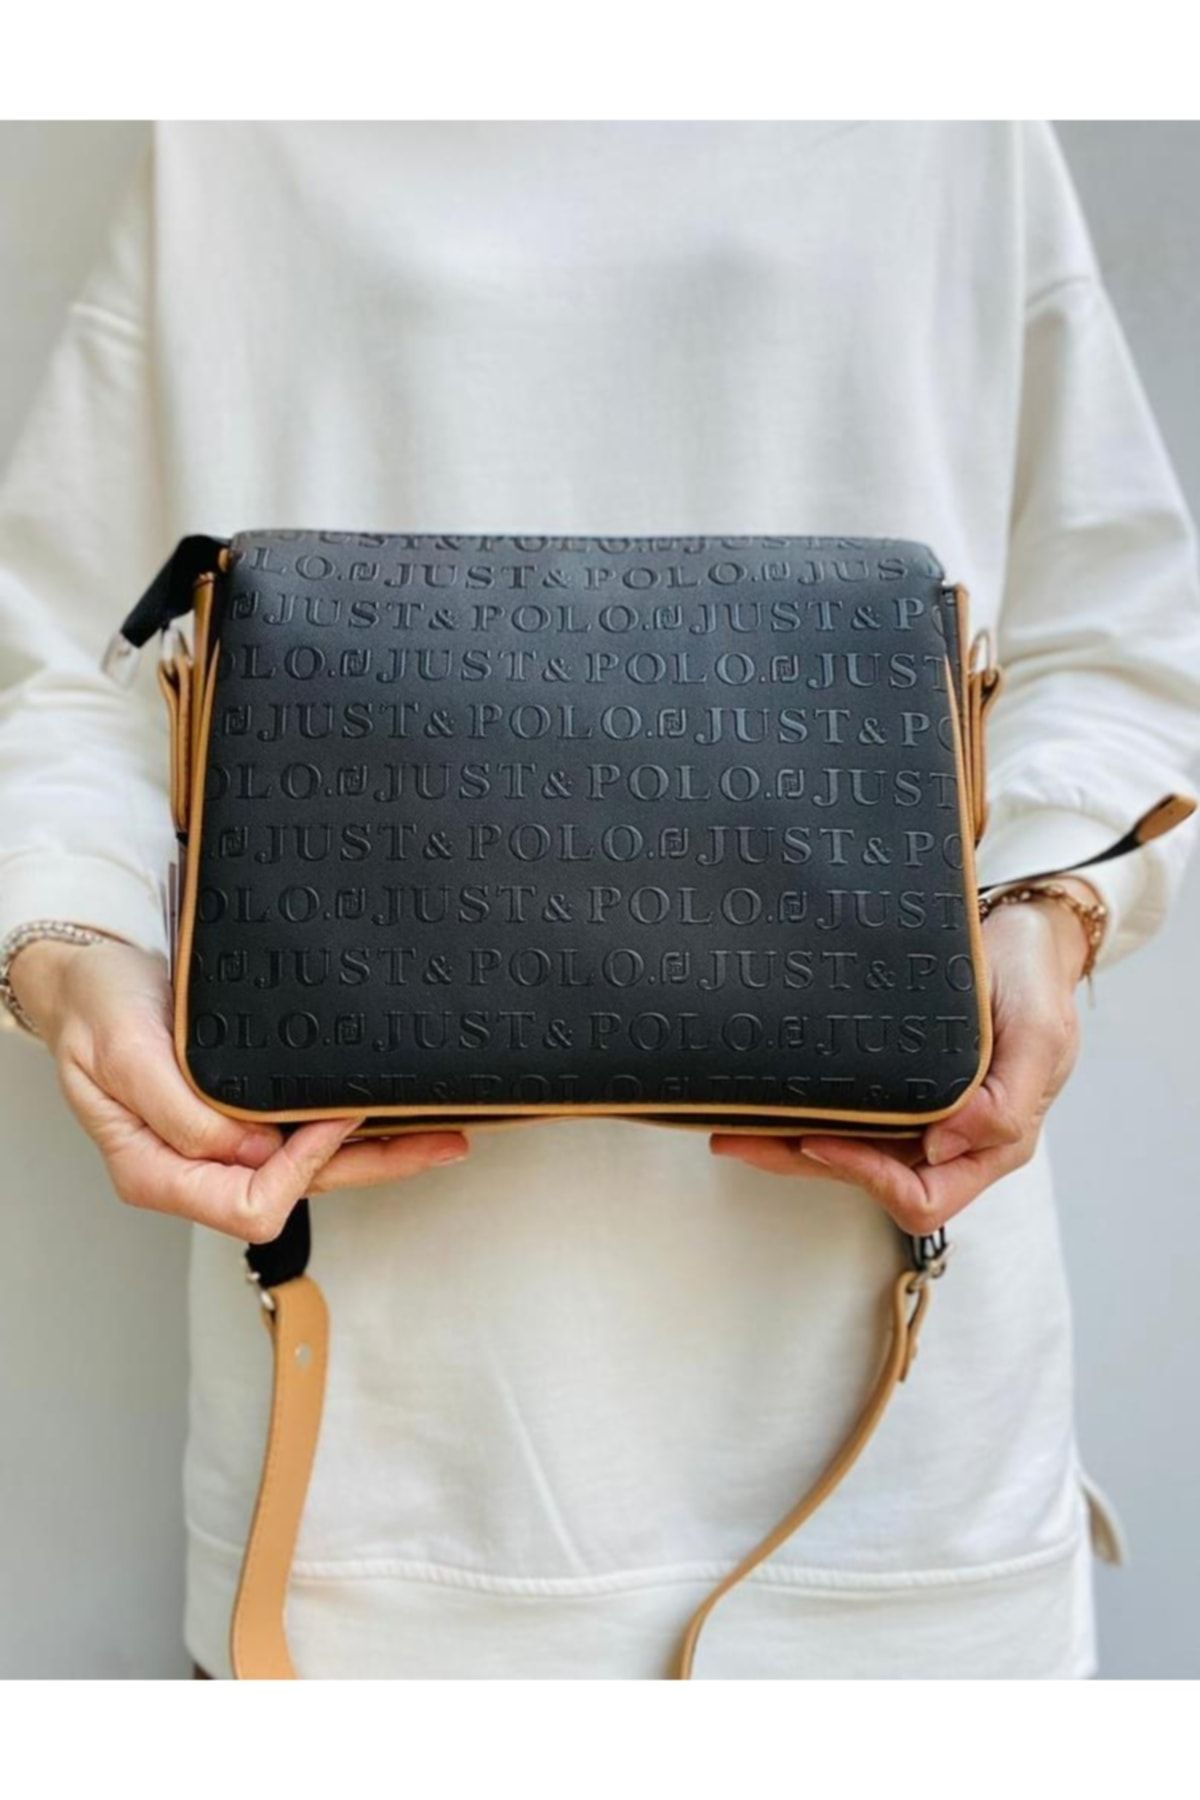 JUST & POLO. JUST &
LO. JUST & POLO. JUS
JUST & POLO. JUST & P
OLO. JUST & POLO. JUST
JUST & POLO. JUST & PO
OLO. JUST & POLO. JUST
JUST & POLO. JUST & PO
OLO. JUST & POLO. JUST
. JUST & POLO. JUST & PO
OLO. JUST & POLO. JUST
JUST & POLO JUST & PO